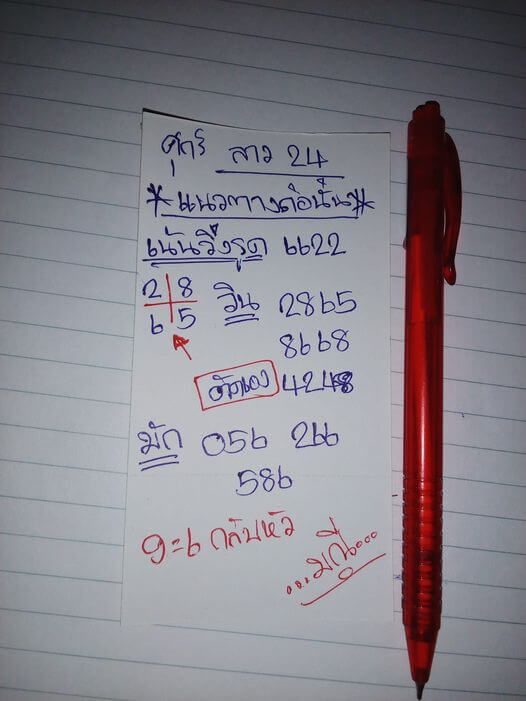 ศุกร์ ลาว 24
*แนวทางต่อนั้น*
เน้นวิ่งรูด 6622
2 8 วิน 2865
6 5
8668
ตัดเอง 4248
มัก 056 266
586
9=6 กลับหัว
...มณี...